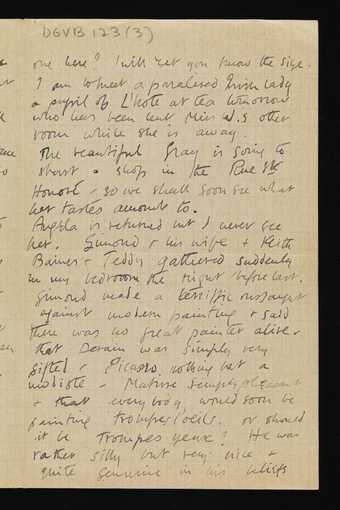 DGVB 123(3)
one here? I will let you know the size.
I am to meet a paralered Irish lady
a pupil of L'hote at tea tomorrow
who has been lent Miss W.s other
room while she is away.
The beautiful Gray is going to
start a shop in the Rue St
Honoré - so we shall soon see what
her tastes amounts to.
Angela is returned but I never see
her. Simond & his wife + Keith
Baines + Teddy gathered suddenly
in my bedroom the night before last.
Simond made a terrific onslaught
against modern painting & said
there was no great painter alive -
that Derain was simply very
gifted - Picasso, nothing but a
modiste - Matisse simply pleasant
& that everybody would soon be
painting trompes l'oeils. or should
it be trompes yeux? He was
rather silly but very nice &
quite genuine in his beliefs